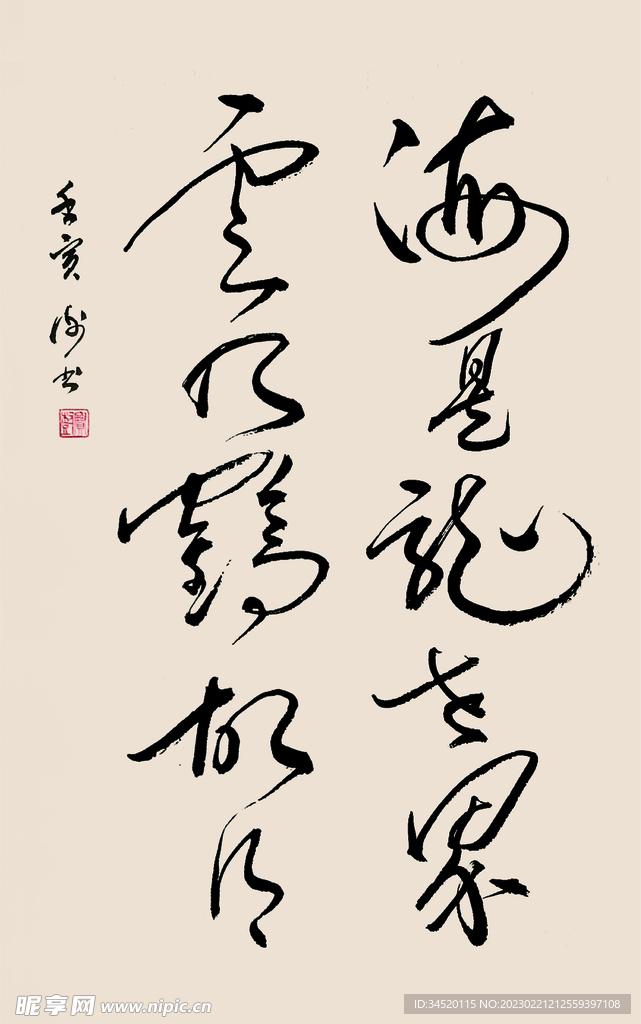 海是龙世界
云乃鹤故乡
壬寅 陶书
昵享网 www.nipic.cn
ID:34520115 NO:20230221212559397108